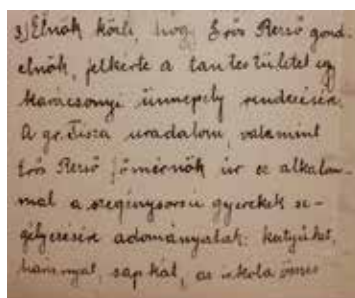 3) Elnök közli, hogy Erős Rezső gond-
elnök, felkérte a tantestületet egy
karácsonyi ünnepély rendezésére.
A gr. Tisza uradalom, valamint
Erős Rezső főmérnök úr ez alkalom-
mal a szegénysorsú gyerekek se-
gélyezésére adományaztak: kestyűket,
sapkát, az iskola összes